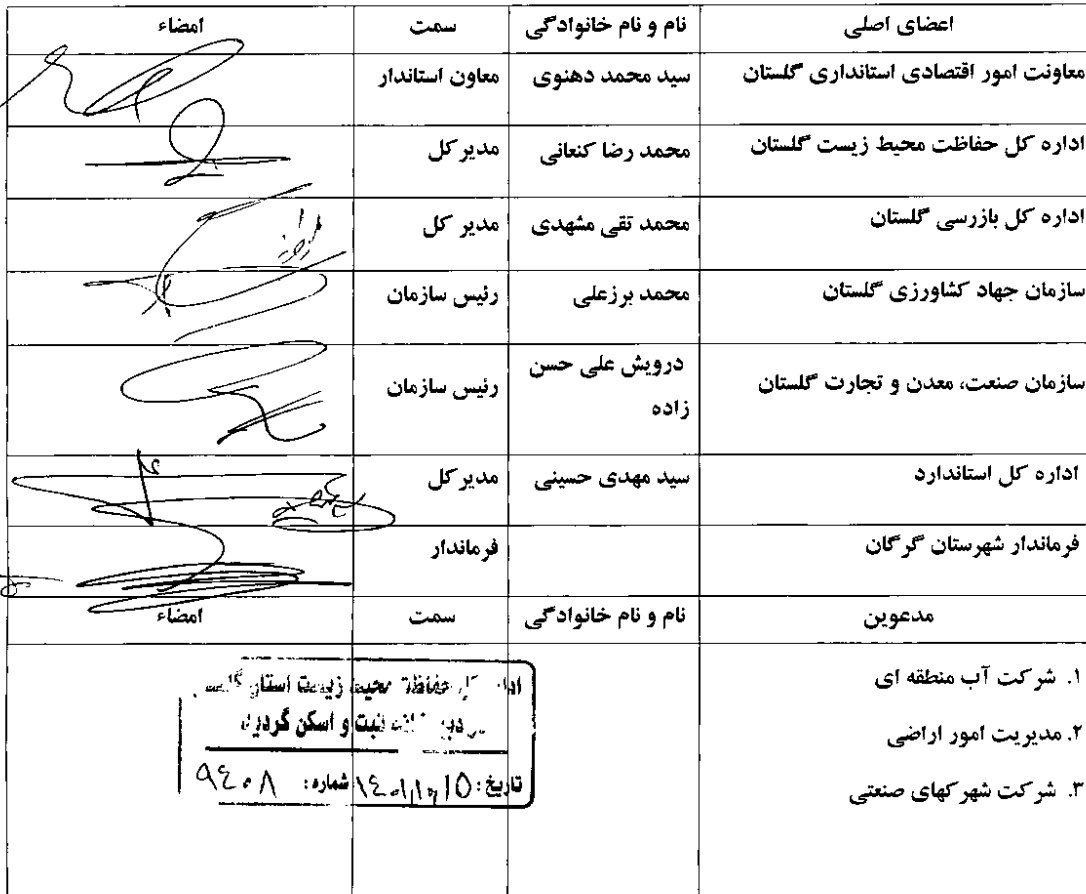 اعضای اصلی نام و نام خانوادگی سمت امضاء
معاونت امور اقتصادی استانداری گلستان سید محمد دهنوی معاون استاندار
اداره کل حفاظت محیط زیست گلستان محمد رضا کنعانی مدیر کل
اداره کل بازرسی گلستان محمد تقی مشهدی مدیر کل
سازمان جهاد کشاورزی گلستان محمد برزعلی رئیس سازمان
سازمان صنعت، معدن و تجارت گلستان درویش علی حسن رئیس سازمان
زاده
اداره کل استاندارد سید مهدی حسینی مدیر کل
فرماندار شهرستان گرگان فرماندار
مدعوین نام و نام خانوادگی سمت امضاء
۱. شرکت آب منطقه ای
۲. مدیریت امور اراضی
۳. شرکت شهرکهای صنعتی
حفاظت محیط زیست استان
ثبت و اسکن گردید
تاریخ: شماره: ۹۴۰۸